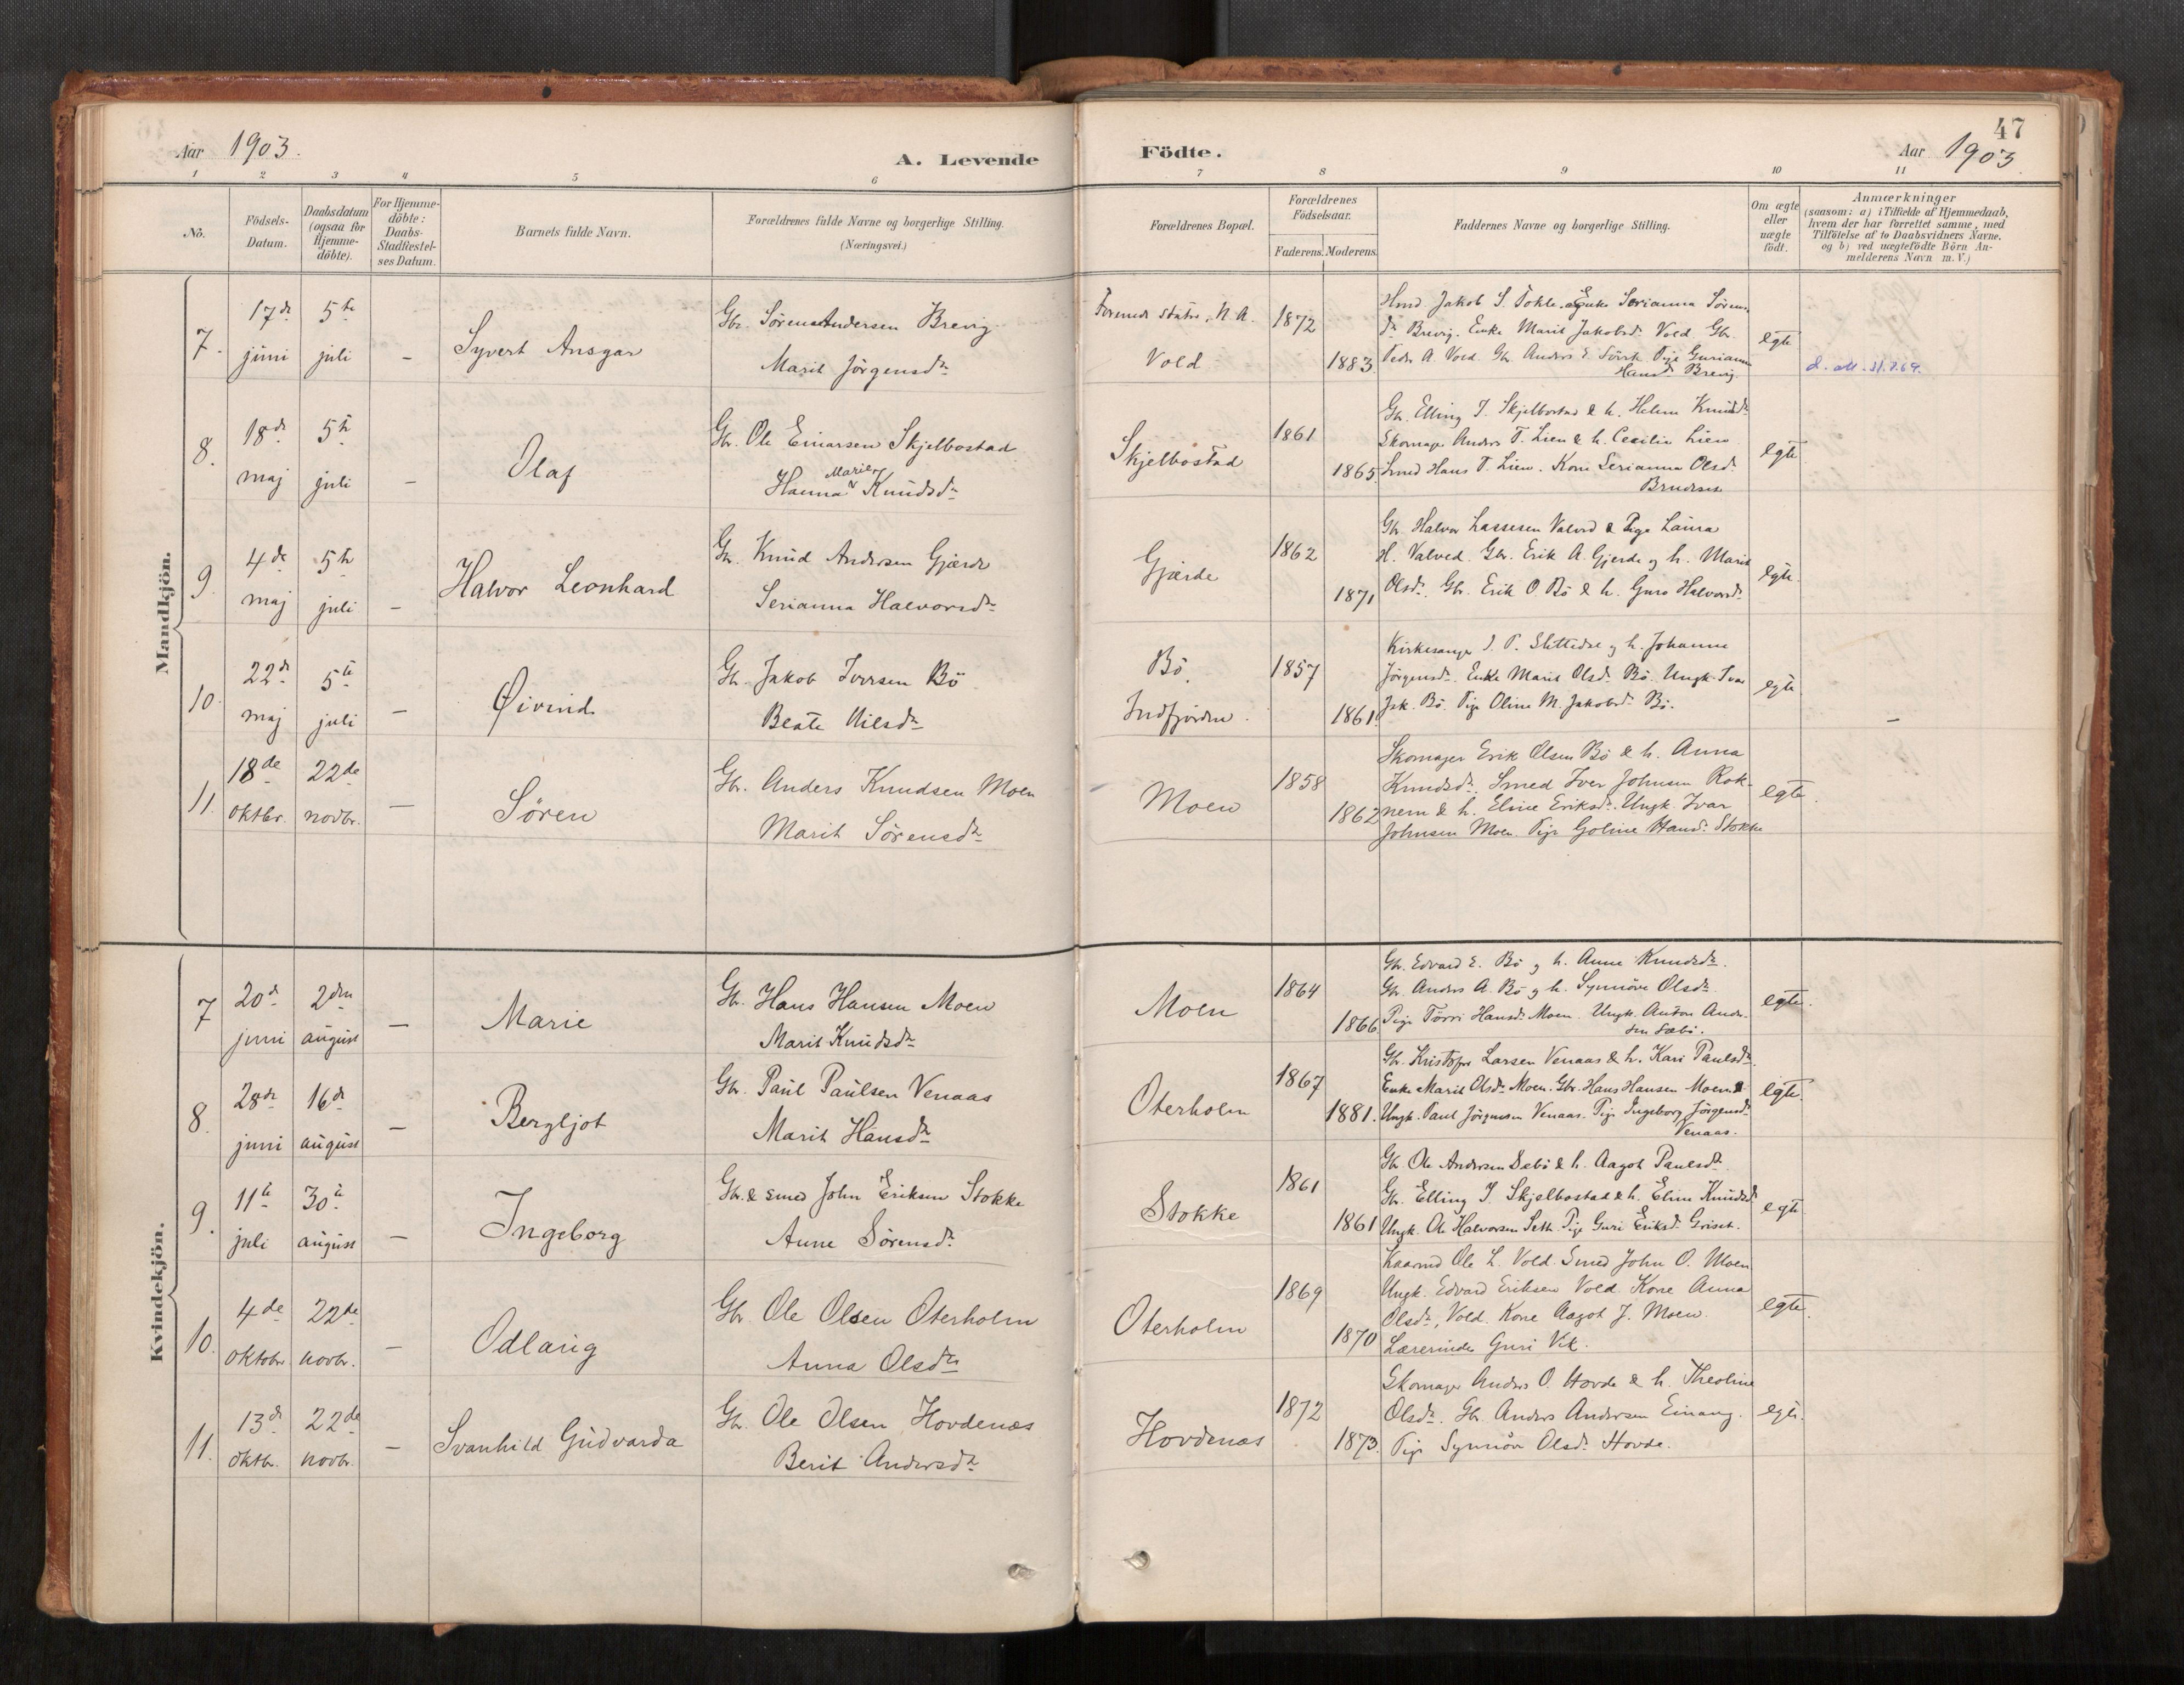 Aar 1903.
A. Levende
Födte.
47
Aar 1903
1 2 3 4 5 6 7 8 9 10 11
No.
Födsels-
Datum.
Daabsdatum
(ogsaa for
Hjemme-
döbte).
For Hjemme-
döbte:
Daabs-
Stadfæstel-
ses Datum.
Barnets fulde Navn.
Forældrenes fulde Navne og borgerlige Stilling.
(Næringsvei.)
Forældrenes Bopæl.
Forældrenes
Födselsaar.
Faderens. Moderens.
Faddernes Navne og borgerlige Stilling.
Om ægte
eller
uægte
födt.
Anmærkninger
(saasom: a) i Tilfælde af Hjemmedaab,
hvem der har forrettet samme, med
Tilföielse af to Daabsvidners Navne,
og b) ved uægtefödte Börn An-
melderens Navn m. V.)
Mandkjön.
7. 17de juni
5te juli
–
Syvert Ansgar
Gbr. Søren Andersen Brevig
Marit Jörgensdr
Forenede Stater, N. A.
Vold
1872
1883
Jakob S. Tokle. Enke Serianna Sørens-
dr. Brevig. Enke Marit Jakobsd. Vold Gbr.
Peder A. Vold. Gbr. Anders Pige Gurianna
Hansd. Brevig.
egte
8. 18de maj
5te juli
–
Olaf
Gbr. Ole Einarsen Skjelbostad
Hanna Marie Knudsdr
Skjelbostad
1861
1865
Gbr. Elling J. Skjelbostad & h. Helene Knudsdr
Skomager Anders T. Lien & h. Cecilie Lien
Smed Hans T. Lien. Kone Serianna Olsd.
egte
9. 4de maj
5te juli
–
Halvor Leonhard
Gbr. Knud Andersen Gjærde
Serianna Halvorsdr
Gjærde
1862
1871
Gbr. Halvor Lassesen Valved & Pige Laura
H. Valved. Gbr. Erik A. Gjerde og h. Marit
Olsdr. Gbr. Erik O. Bö & h. Guro Halvorsdr
egte.
10. 22de maj
5te juli
–
Øivind
Gbr. Jakob Iversen Bö
Beate Nilsdr
Bö.
Indfjorden.
1857
1861
Kirkesanger og h. Johanne
Jörgensdr. Enke Marit Olsd. Bö. Ungk. Ivar
Jak. Bö. Pige Oline M. Jakobsd. Bö.
egte
–
11. 18de oktbr.
22de novbr.
–
Sören
Gbr. Anders Knudsen Moen
Marit Sörensdr
Moen
1858
1862
Skomager Erik Olsen Bö & h. Anna
Knudsdr. Smed Iver Johnsen Rok-
nem & h. Eline Eriksdr. Ungk. Ivar
Johnsen Moen. Pige Goline Hansd. Stokke
egte.
Kvindekjön.
7 20de juni
2den august
–
Marie
Gbr. Hans Hansen Moen
Marit Knudsdr
Moen
1864
1866
Gbr. Edvard E. Bö og h. Anne Knudsdr.
Gbr. Anders A. Bö og h. Synnöve Olsdr.
Pige Hansd. Moen. Ungk. Anton Ander-
sen Sæbö.
egte.
8. 28de juni
16de august
–
Bergljot
Gbr. Paul Paulsen Venaas
Marit Hansdr
Oterholm
1867
1881.
Gbr. Kristoffer Larsen Venaas & h. Kari Paulsdr.
Enke Marit Olsdr Moen. Gbr. Hans Hansen Moen &
Ungk. Paul Jörgensen Venaas. Pige Ingeborg Jörgensdr
Venaas.
egte.
9. 11te juli
30te august
–
Ingeborg
Gbr. & smed John Eriksen Stokke
Anne Sörensdr
Stokke
1861
1861
Gbr. Ole Andersen Sebö & h. Aagot Paulsdr.
Gbr. Elling J. Skjelbostad & h. Eline Knudsdr
Ungk. Ole Halvorsen Seth. Pige Guri Eriksd. Griset.
egte
10. 4de oktobr
22de novbr.
–
Odlaug
Gbr. Ole Olsen Oterholm
Anna Olsdr
Oterholm
1869
1870
Kaarmd Ole L. Vold. Smed John O. Moen
Ungk. Edvard Eriksen Vold. Kone Anna
Olsdr, Vold. Kone Aagot J. Moen.
Lærerinde Guri Vik.
egte.
11. 13de oktbr.
22de novbr.
–
Svanhild Gudvarda
Gbr. Ole Olsen Hovdenæs
Berit Andersdr
Hovdenæs
1872
1873.
Skomager Anders O. Hovde & h. Theoline
Olsdr. Gbr. Anders Andersen Einang.
Pige Synnöve Olsd. Hovde.
egte.